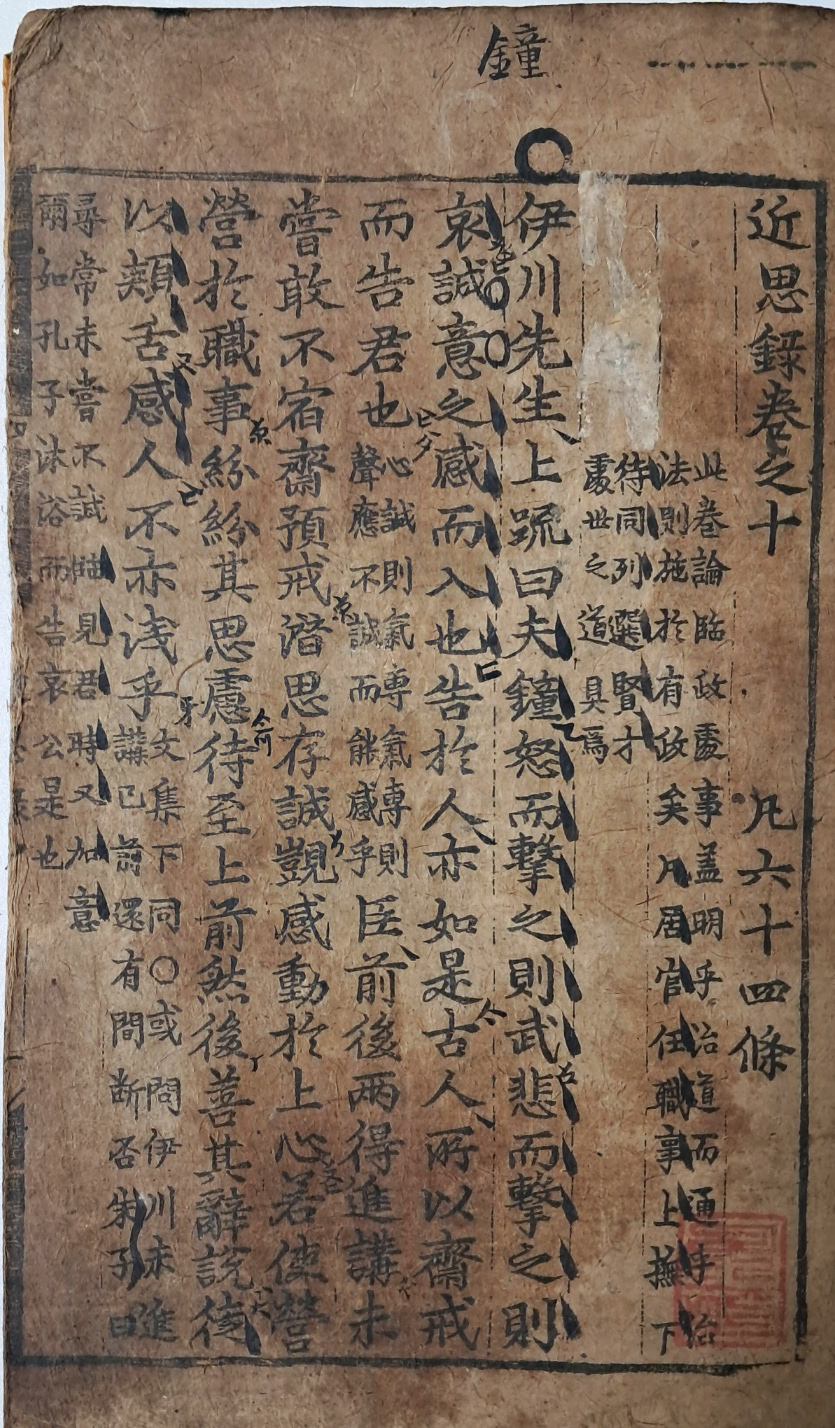 鐘
近思録卷之十 凡六十四條
此卷論臨政處事盖明乎治道而通乎治
法則施於有政矣凡居官任職事上撫下
待同列選賢才
處世之道具焉
伊川先生上䟽曰夫鐘怒而擊之則武悲而擊之則
哀誠意之感而入也告於人亦如是古人所以齋戒
而告君也
心誠則氣專氣專則
聲應不誠而能感乎
臣前後兩得進講未
嘗敢不宿齋預戒潜思存誠覬感動於上心若使營
營於職事紛紛其思慮待至上前然後善其辭說徒
以頰舌感人不亦浅乎
文集下同〇或問伊川未進
講已前還有間断否朱子曰
尋常未嘗不誠臨見君時又加意
爾如孔子沐浴而告哀公是也